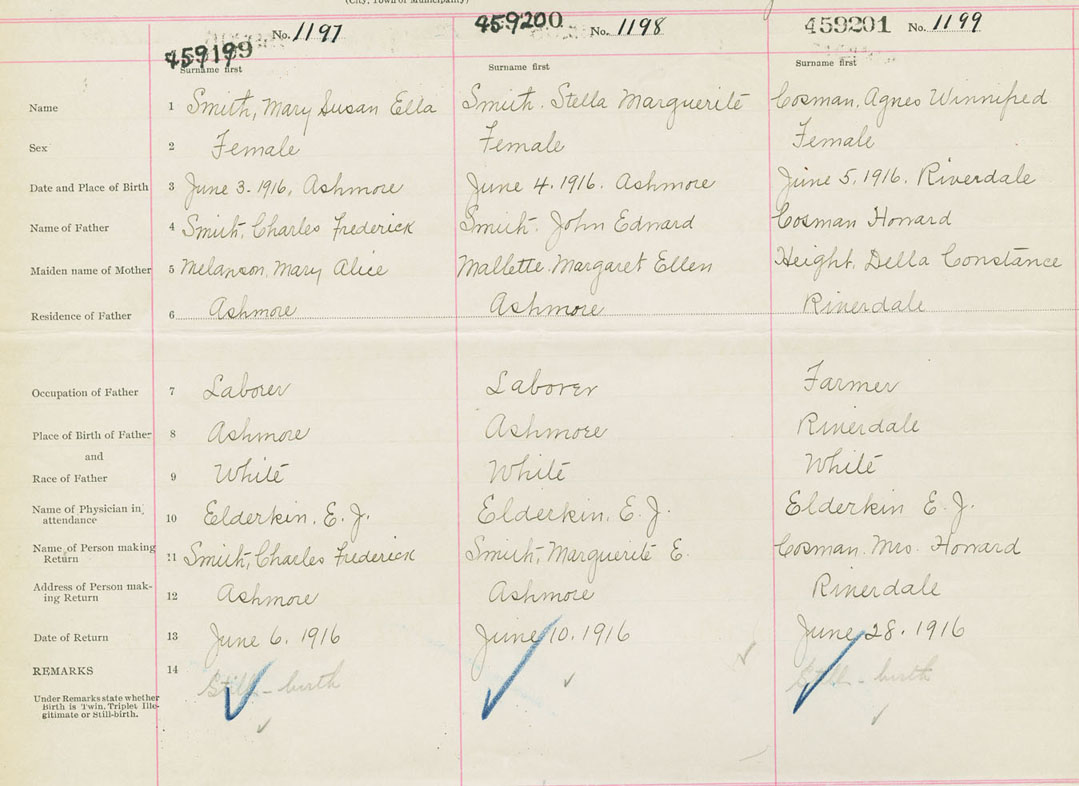 (City, Town or Municipality)
459199 No. 1197 459200 No. 1198 459201 No. 1199
Surname first Surname first Surname first
Name 1 Smith, Mary Susan Ella Smith. Stella Marguerite Cosman, Agnes Winnifred
Sex 2 Female Female Female
Date and Place of Birth 3 June 3-1916, Ashmore June 4. 1916. Ashmore June 5, 1916. Riverdale
Name of Father 4 Smith, Charles Frederick Smith. John Edward Cosman Howard
Maiden name of Mother 5 Melanson, Mary Alice Mallette. Margaret Ellen Height, Della Constance
Residence of Father 6 Ashmore Ashmore Riverdale
Occupation of Father 7 Laborer Laborer Farmer
Place of Birth of Father 8 Ashmore Ashmore Riverdale
and
Race of Father 9 White White White
Name of Physician in
attendance 10 Elderkin, E. J. Elderkin, E. J. Elderkin E. J.
Name of Person making
Return 11 Smith, Charles Frederick Smith, Marguerite E. Cosman. Mrs. Howard
Address of Person mak-
ing Return 12 Ashmore Ashmore Riverdale
Date of Return 13 June 6. 1916 June 10. 1916 June 28. 1916
REMARKS 14 Still-birth Still-birth
Under Remarks state whether
Birth is Twin, Triplet Ille-
gitimate or Still-birth.